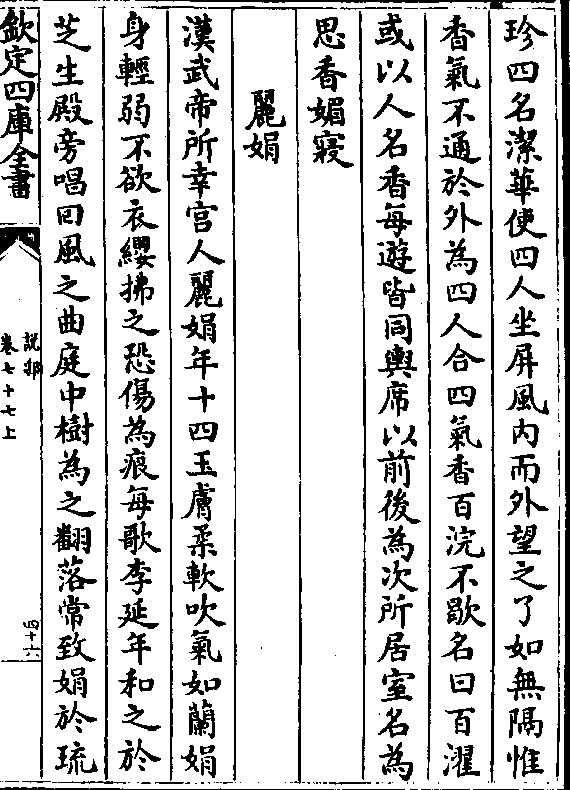 珍四名潔華使四人坐屏風内而外望之了如無隔惟
香氣不通於外為四人合四氣香百浣不歇名曰百濯
或以人名香每遊皆同輿席以前後為次所居室名為
思香媚寢
麗娟
漢武帝所幸宫人麗娟年十四玉膚柔軟吹氣如蘭娟
身輕弱不欲衣纓拂之恐傷為痕每歌李延年和之於
芝生殿旁唱回風之曲庭中樹為之翻落常致娟於琉
欽定四庫全書
說郛
卷七十七上
四十六